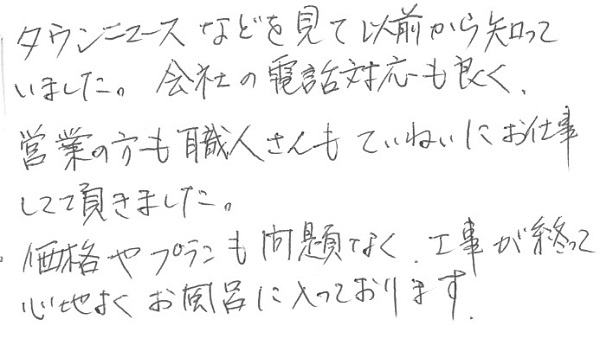 タウンニュースなどを見て以前から知って
いました。会社の電話対応も良く、
営業の方も職人さんもていねいにお仕事
して頂きました。
価格やプランも問題なく、工事が終って
心地よくお風呂に入っております。